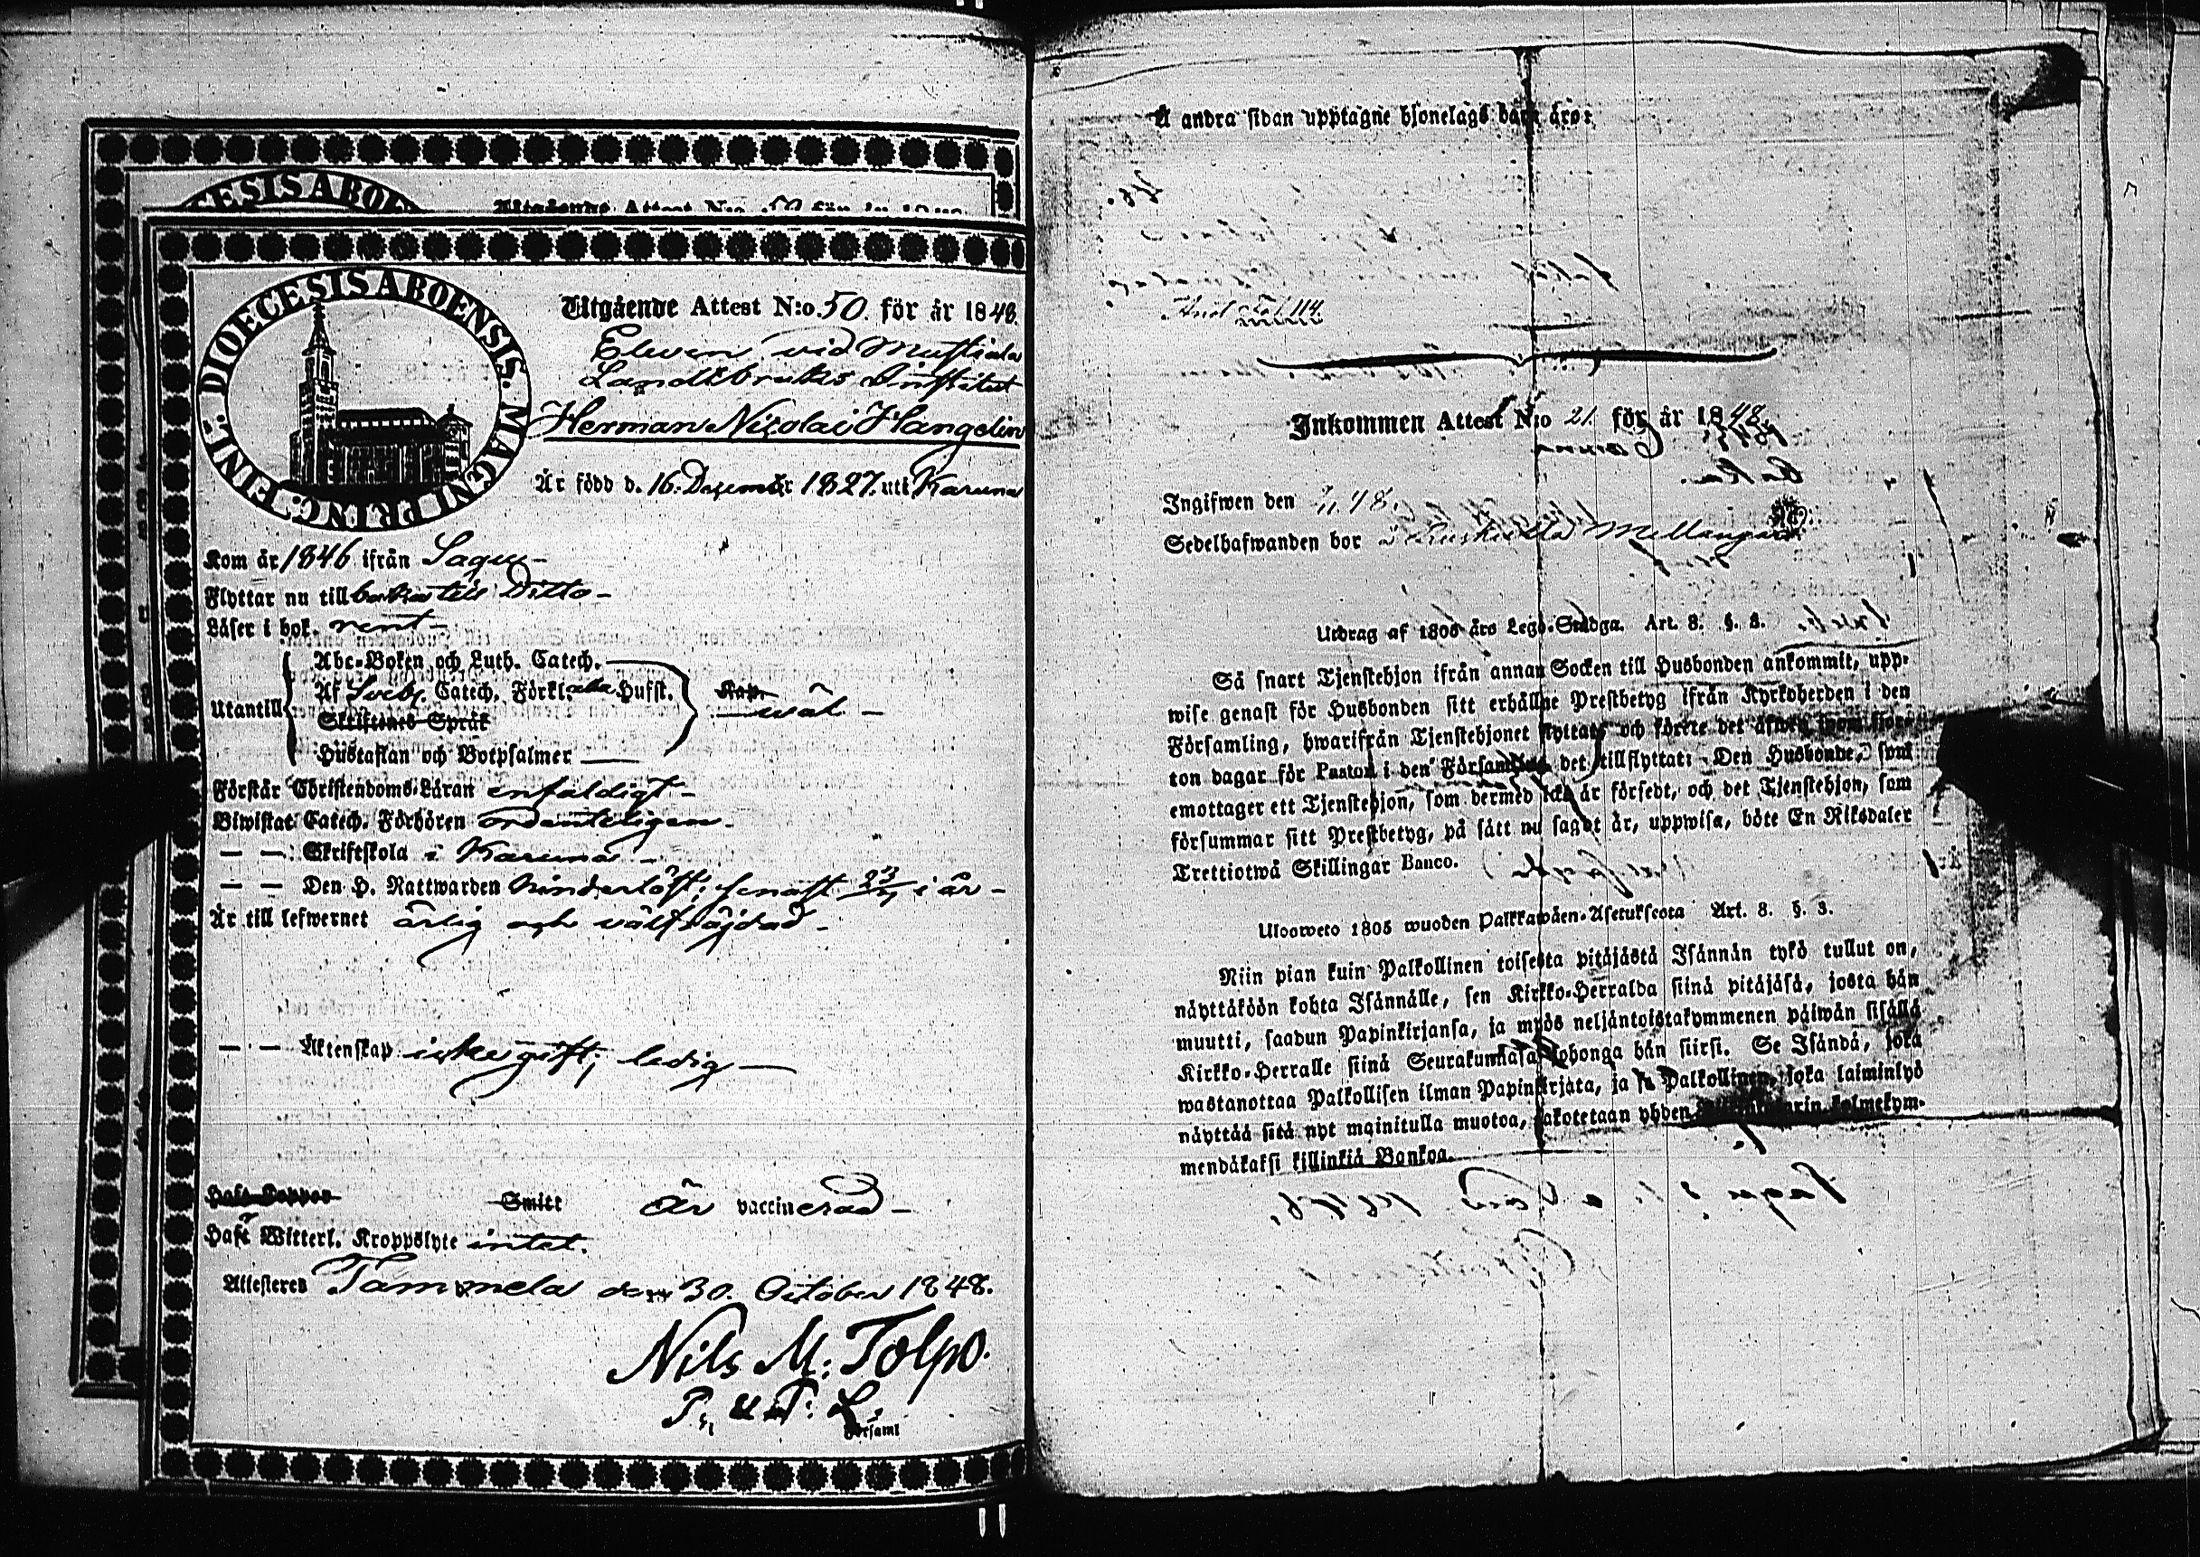 CESIS ABOE
Utgående Attest N:o 50 för år
DIOECESIS ABOENSIS. MAGNI PRINC. FINL:
Utgående Attest N:o 50. för år 1848.
Eleven vid Mustiala
Landtbruks Institut
Herman Nicolai Hangelin
Är född d. 16. December 1827. uti Karuna
Kom år 1846 ifrån Sagu –
Flyttar nu till baka till Ditto –
Läser i bok rent –
Abc-Boken och Luth. Catech.
Utantill Af Sveb. Catech. Förkl. alla Hufst. Kap. wäl –
Skriftenes Språk
Hustaflan och Botpsalmer
Förstår Christendoms-Läran enfäldigt –
Biwistat Catech. Förhören ordentligen –
— — Skriftskola i Karuna –
— — Den H. Nattwarden hinderlöst; senast 23/7 i år –
Är till lefwernet ärlig och wälfräjdad –
— — Äktenskap icke gift; ledig –
Haft Koppor Smitt Är vaccinerad –
Haft Witterl. Kroppslyte intet.
Attesteras Tammela den 30. October 1848.
Nils M. Tolpo.
Församl
Å andra sidan upptagne hjonelags barn äro:
Inkommen Attest N:o 21. för år 1848.
Ingifwen den 48.
Sedelhafwanden bor Mellangård
Utdrag af 1805 års Lego-Stadga. Art. 8. §. 3.
Så snart Tjenstehjon ifrån annan Socken till Husbonden ankommit, upp-
wise genast för Husbonden sitt erhållne Prestbetyg ifrån Kyrkoherden i den
Församling, hwarifrån Tjenstehjonet flyttat, och förete det äfwen inom fjor-
ton dagar för Pastor i den Församling det tillflyttat: Den Husbonde, som
emottager ett Tjenstehjon, som dermed icke är försedt, och det Tjenstehjon, som
försummar sitt Prestbetyg, på sätt nu sagdt är, uppwisa, böte En Riksdaler
Trettiotwå Skillingar Banco.
Ulosweto 1805 wuoden Palkkawäen-Asetuksesta Art. 8. §. 3.
Niin pian kuin Palkollinen toisesta pitäjästä Isännän tykö tullut on,
näyttäköön kohta Isännälle, sen Kirkko-Herralda siinä pitäjäsä, josta hän
muutti, saadun Papinkirjansa, ja myös neljäntoistakymmenen päiwän sisällä
Kirkko-Herralle siinä Seurakunnasa johonga hän siirsi. Se Isändä, joka
wastanottaa Palkollisen ilman Papinkirjata, ja se Palkollinen, joka laiminlyö
näyttää sitä nyt mainitulla muotoa, sakotetaan yhden kolmekym-
mendäkaksi killinkiä Bankoa.